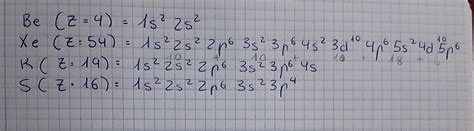 Be (Z=4) = 1s² 2s²
Xe (Z=54) = 1s² 2s² 2p⁶ 3s² 3p⁶ 4s² 3d¹⁰ 4p⁶ 5s² 4d¹⁰ 5p⁶
K (Z=19) = 1s² 2s² 2p⁶ 3s² 3p⁶ 4s
S (Z=16) = 1s² 2s² 2p⁶ 3s² 3p⁴